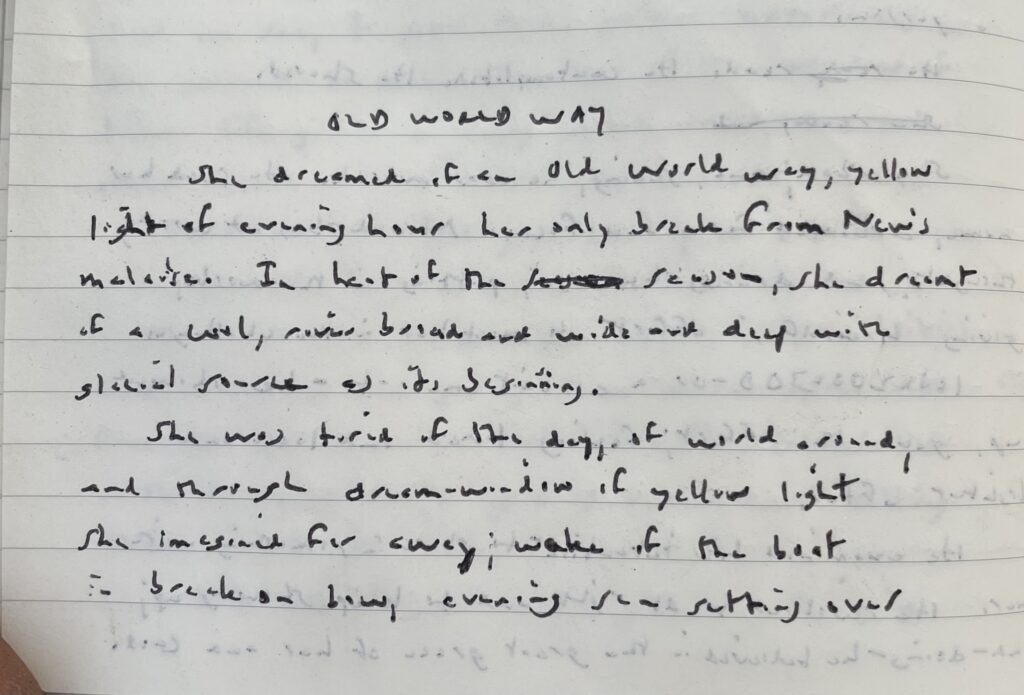 OLD WORLD WAY
She dreamed of an Old World way, yellow
light of evening hour her only break from New's
malaise. In heat of the season, she dreamt
of a cool, river broad and wide and deep with
glacial source as its beginning.
She was tired of the day, of world around,
and through dream-window of yellow light
she imagined far away; wake of the boat
in break on bow, evening sun setting over